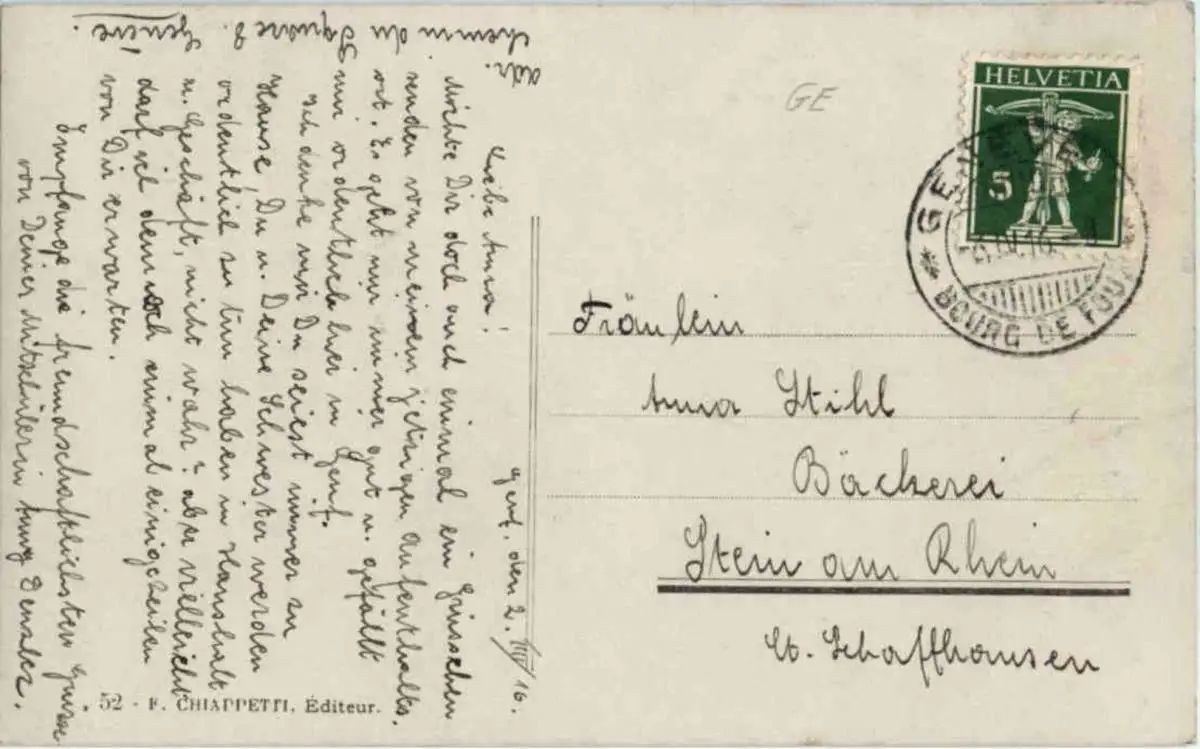 Genf, den 2. IV 16.
Liebe Anna!
Möchte Dir doch auch einmal ein Grüsschen
senden von meinem jetzigen Aufenthalts-
ort. Es geht mir immer gut u. gefällt
mir ordentlich hier in Genf.
Ich denke mir Du seiest immer zu
Hause, Du u. Deine Schwester werden
ordentlich zu tun haben in Haushalt
u. Geschäft, nicht wahr? aber vielleicht
darf ich dennoch einmal einige Zeilen
von Dir erwarten.
Empfange die freundschaftlichsten Grüsse
von Deiner Mitschülerin
Adr.
Chemin du Square 8.
Genève.
52 - F. CHIAPPETTI, Éditeur.
GE
HELVETIA
5
GENÈVE
IV.16
BOURG DE FOUR
Fräulein
Anna Stihl
Bäckerei
Stein am Rhein
Ct. Schaffhausen